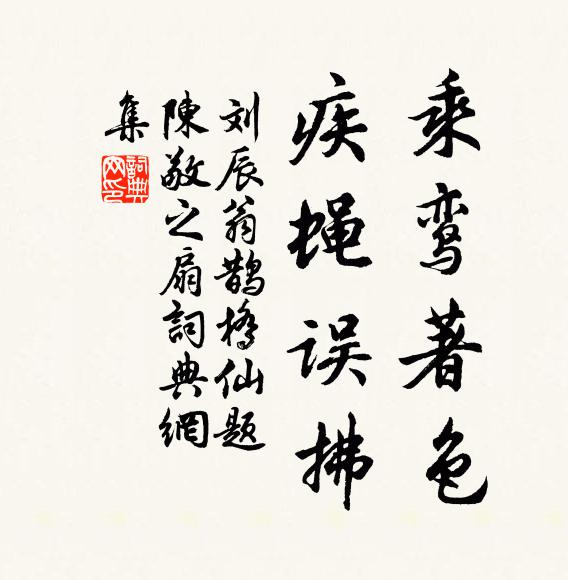 乘鸾著色
疾蝇误拂
刘辰翁鹊桥仙题
陳敬之扇詞典網
集
詞典网印